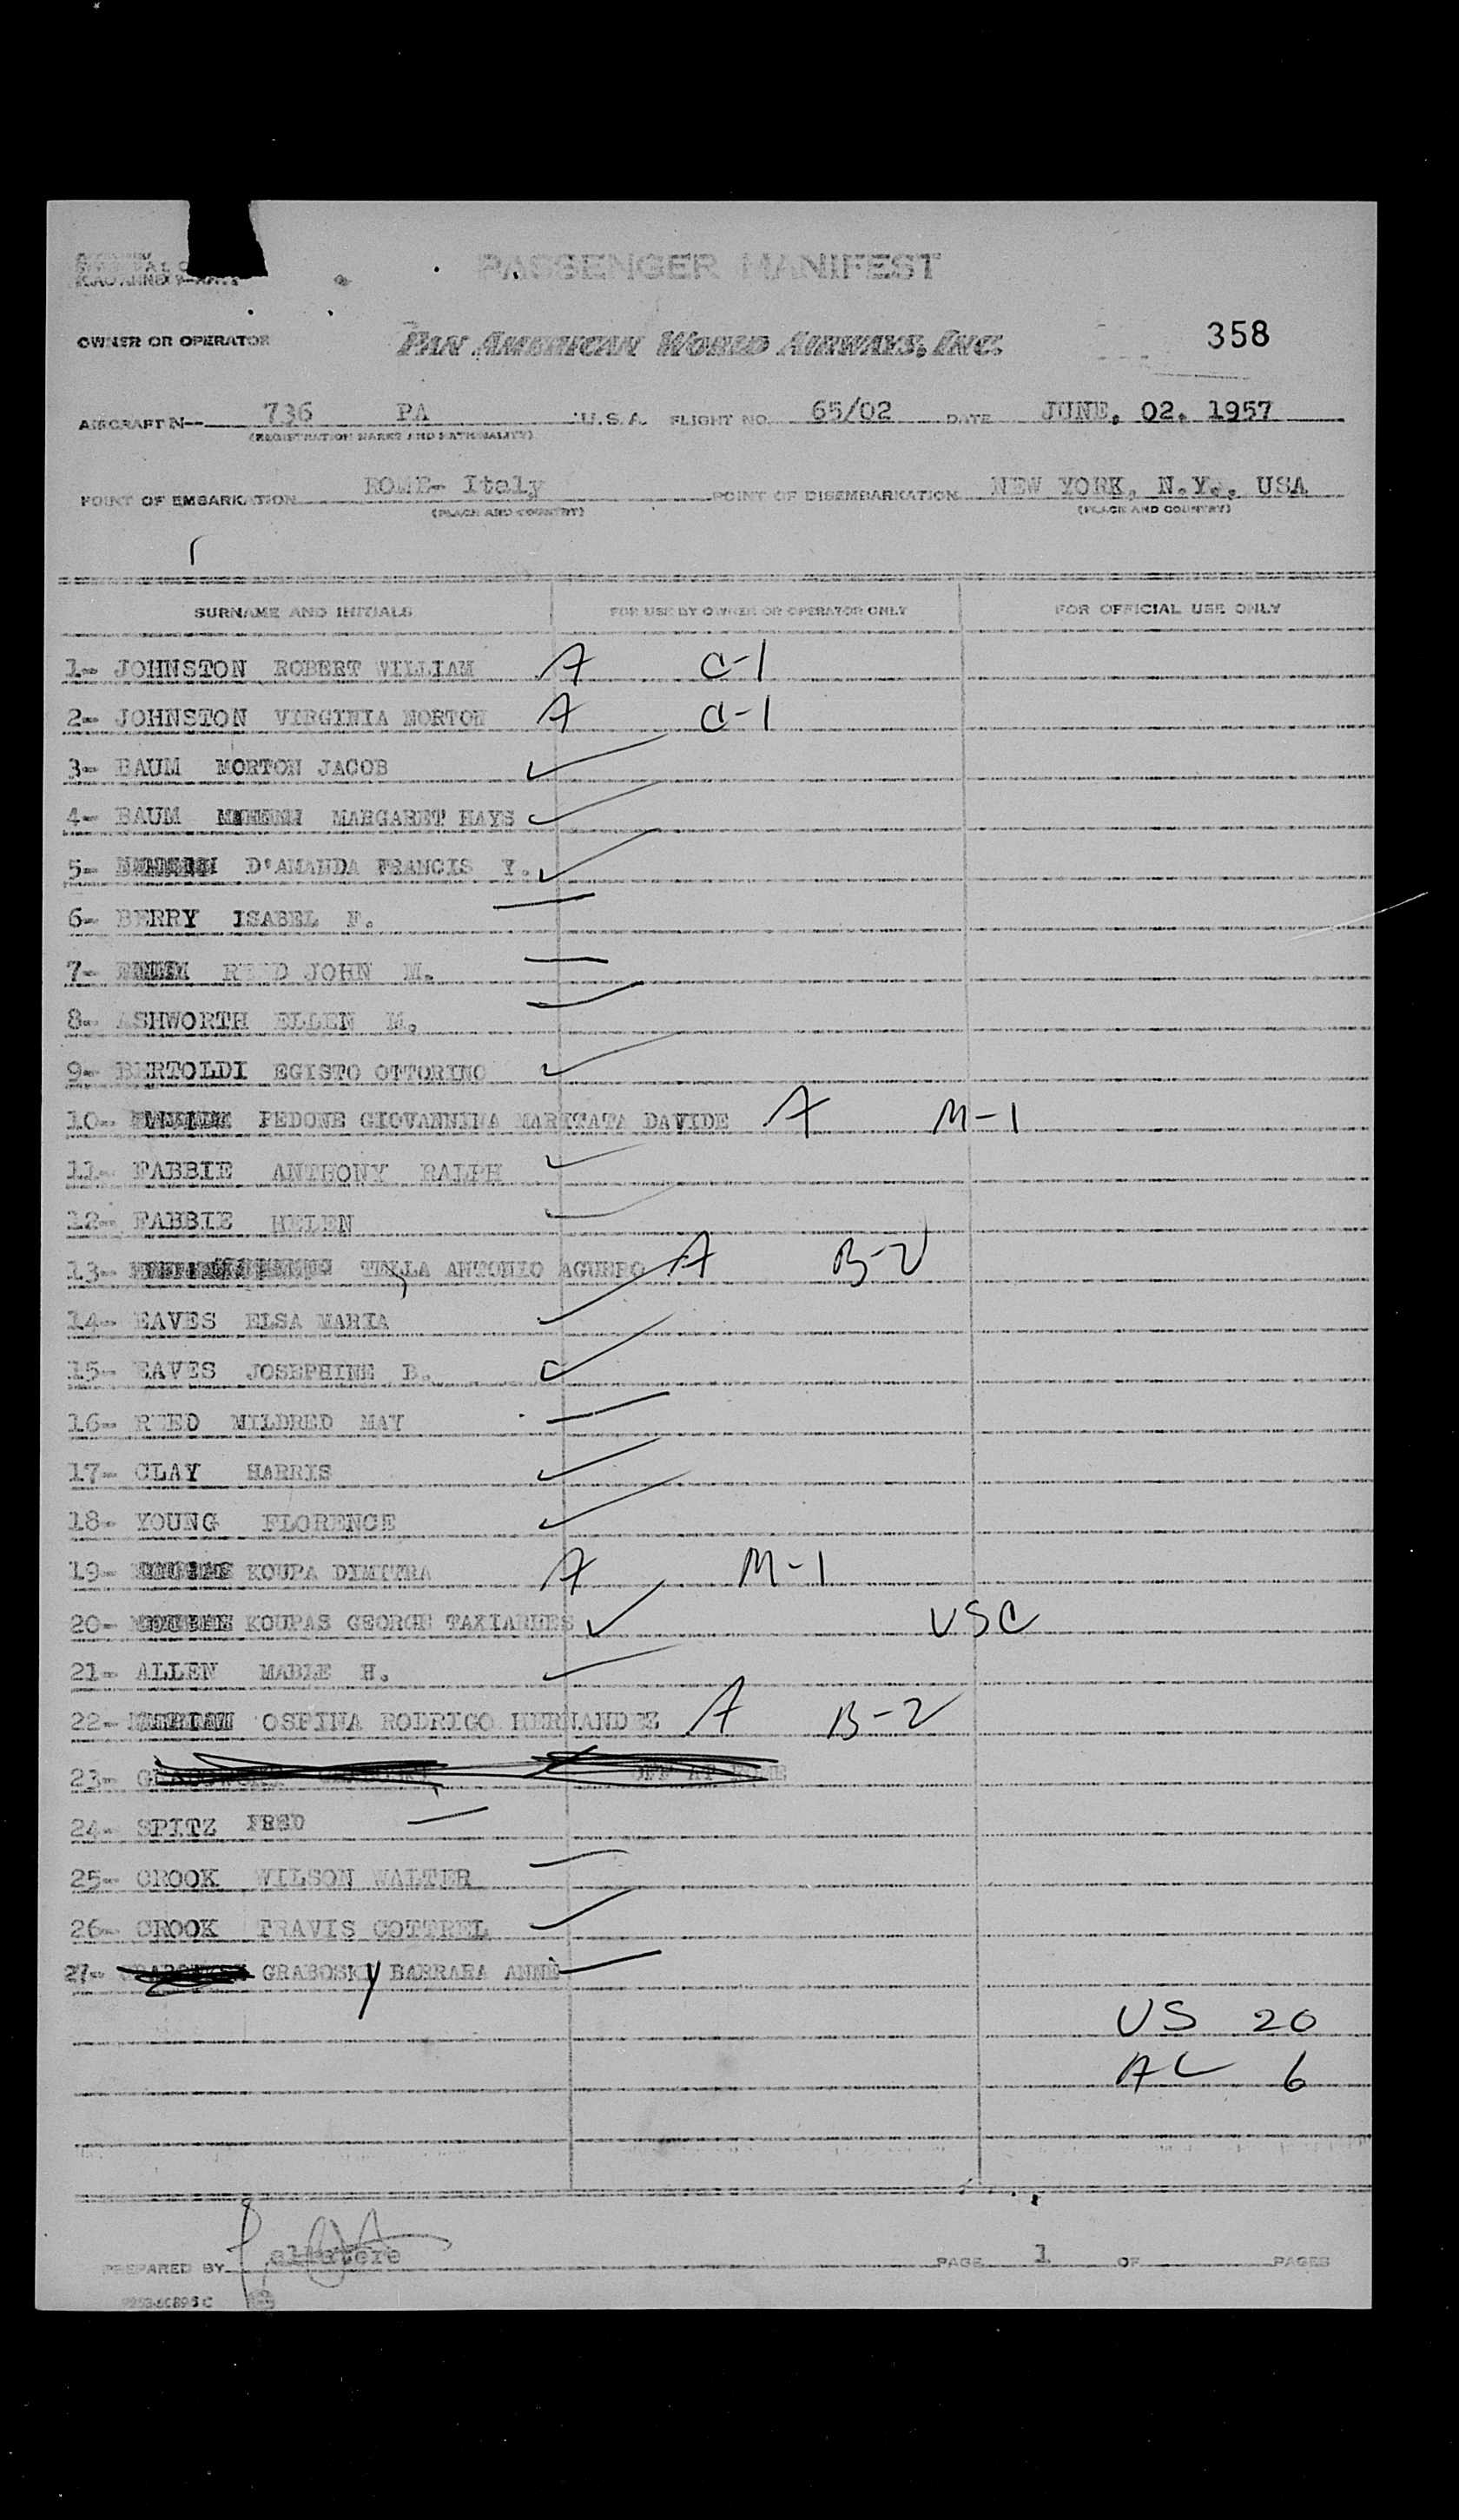 PASSENGER MANIFEST
OWNER OR OPERATOR PAN AMERICAN WORLD AIRWAYS, INC. 358
AIRCRAFT N-- 736 PA U.S.A. FLIGHT NO. 65/02 DATE JUNE, 02. 1957
(REGISTRATION MARKS AND NATIONALITY)
POINT OF EMBARKATION ROME- Italy POINT OF DISEMBARKATION NEW YORK, N.Y., USA
(PLACE AND COUNTRY) (PLACE AND COUNTRY)
SURNAME AND INITIALS FOR USE BY OWNER OR OPERATOR ONLY FOR OFFICIAL USE ONLY
1- JOHNSTON ROBERT WILLIAM A C-1
2- JOHNSTON VIRGINIA MORTON A C-1
3- BAUM MORTON JACOB ✓
4- BAUM MARGARET HAYS ✓
5- D'AMANDA FRANCIS Y. ✓
6- BERRY ISABEL F. —
7- REED JOHN M. —
8- ASHWORTH ELLEN M. ✓
9- BERTOLDI EGISTO OTTORINO ✓
10- PEDONE GIOVANNINA MARITATA DAVIDE A M-1
11- FABBIE ANTHONY RALPH ✓
12- FABBIE HELEN ✓
13- ANTONIO A B-2
14- EAVES ELSA MARIA ✓
15- EAVES JOSEPHINE B. ✓
16- REED MILDRED MAY —
17- CLAY HARRIS ✓
18- YOUNG FLORENCE ✓
19- KOUPA DIMITRA A M-1
20- KOUPAS GEORGE ✓ USC
21- ALLEN MABLE H. ✓
22- OSPINA RODRIGO HERNANDEZ A B-2
23- OFF AT ROME
24- SPITZ FRED —
25- CROOK WILSON WALTER —
26- CROOK TRAVIS COTTREL ✓
27- GRABOSKY BARBARA ANNE —
US 20
AL 6
PREPARED BY PAGE 1 OF PAGES